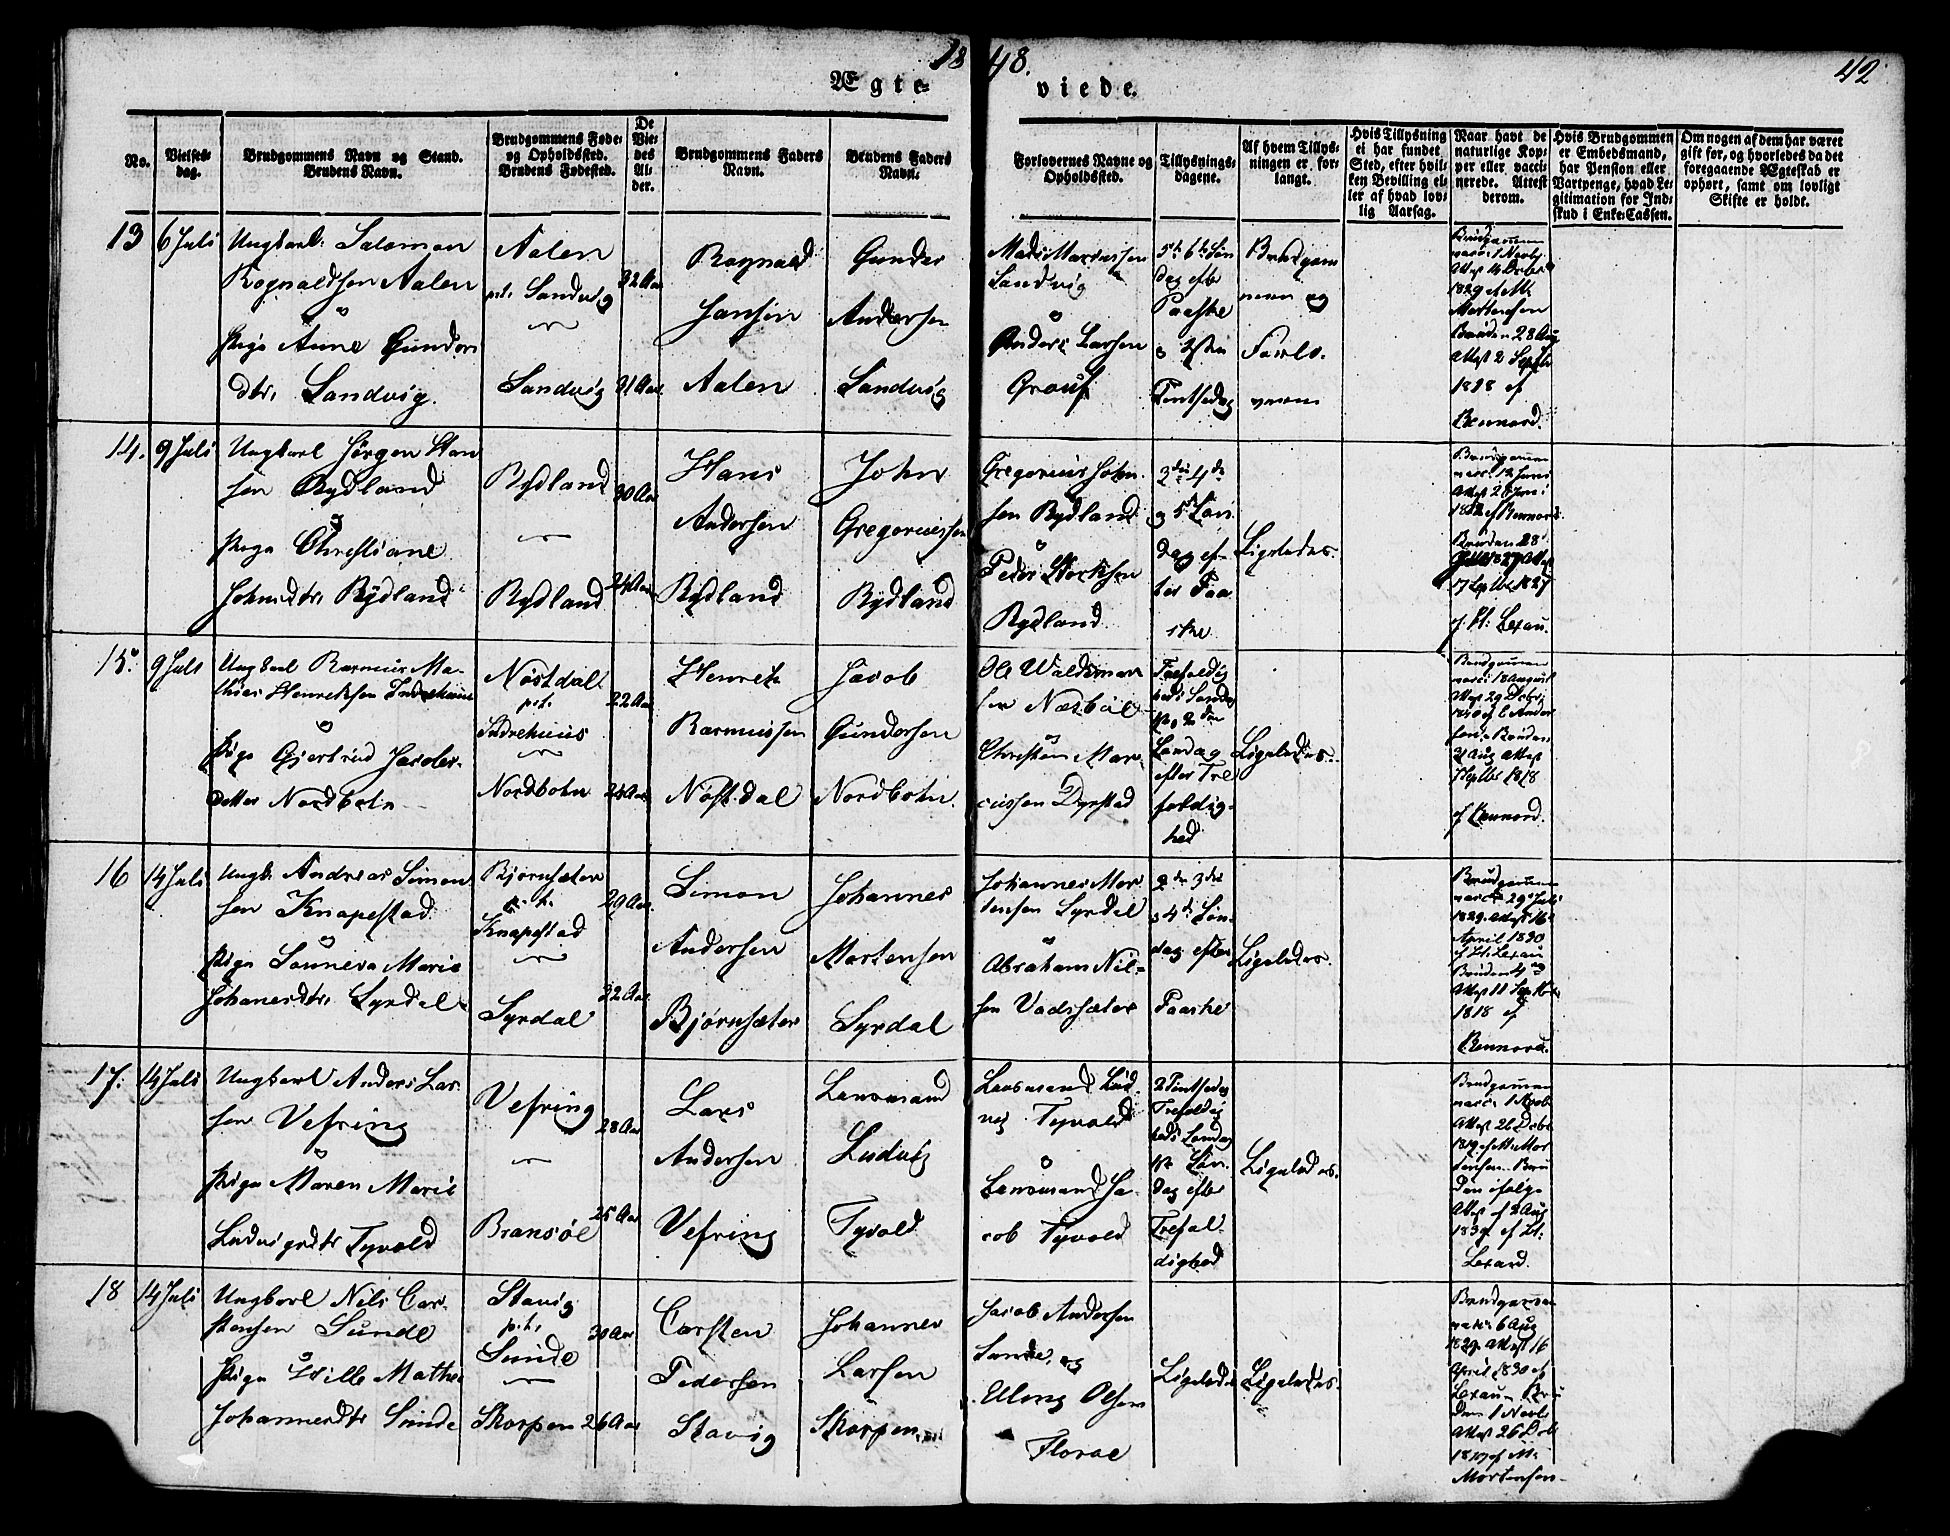 18 48.
42
Ægte- viede.
No.
Vielses-
dag.
Brudgommens Navn og Stand.
Brudens Navn.
Brudgommens Føde-
og Opholdssted.
Brudens Fødested.
De
Vie-
des
Al-
der.
Brudgommens Faders
Navn.
Brudens Faders
Navn.
Forlovernes Navne og
Opholdssted.
Tillysnings-
dagene.
Af hvem Tillys-
ningen er for-
langt.
Hvis Tillysning
ei har fundet
Sted, efter hvil-
ken Bevilling el-
ler af hvad lov-
lig Aarsag.
Naar havt de
naturlige Kop-
per eller vacci-
nerede. Attest
derom.
Hvis Brudgommen
er Embedsmand,
har Pension eller
Vartpenge, hvad Le-
gitimation for Ind-
skud i Enke-Cassen.
Om nogen af dem har været
gift før, og hvorledes da det
foregaaende Ægteskab er
ophørt, samt om lovligt
Skifte er holdt.
13
6 Juli
Ungkarl Salamon
Rognaldsen Aalen
o
Pige Anne Gunders
dtr, Sandvig.
Aalen
p.t. Sandvig
Sandvig
32 Aar
31 Aar
Rognald
Hansen
Aalen
Gunder
Andersen
Sandvig
Mads Marcussen
Sandvig
o
Anders Larsen
Grouf
5te 6te Søn
dag efter
Paaske
o 2den
Pintsedag
Brudgom
men og
Forlo-
veren
Brudgommen
vacc. 1 Novb
Attest 14 Decbr
1829 af M.
Mortensen
Bruden 28 Aug
Attest 2 Septbr
1818 af
Rennord.
14.
9 Juli
Ungkarl Jørgen Han
sen Rydland
o
Pige Christiane
Johnsdtr, Rydland
Rydland
Rydland
30 Aar
24 Aar
Hans
Andersen
Rydland
John
Gregoriussen
Rydland
Gregorius John
sen Rydland
o
Peder
Rydland
3die 4de
o 5te Søn
dag ef-
ter Paa
ske
Ligeledes.
Brudgommen
Attest 26 Juni
af Rennord.
Bruden 28
17 Septbr 1827
15.
9 Juli
Ungkarl Rasmus Ma-
thias Henriksen Indrehuus
o
Pige Gjertrud Jacobs-
datter Nordbotn
Nøstdal
p.t.
Indrehuus
Nordbotn
22 Aar
24 Aar
Henrik
Rasmussen
Nøstdal
Jacob
Gundersen
Nordbotn.
Ole Waldemar
sen Næsbøe
og
Christen Mar-
cussen Dyrstad
Trefoldig
heds Søndag
1ste 2den
Søndag
efter Tre
foldig-
hed
Ligeledes.
Brudgommen
vacc. 18 August
Attest 29 Octbr
Bruden
21 Aug Attest
7 Septbr 1818
af Rennord.
16
14 Juli
Ungk. Andreas Simon
sen Knapestad
o
Pige Sønneva Marie
Johannesdtr, Syrdal
Bjørnsæter
p.t.
Knapestad
Syrdal
29 Aar
32 Aar
Simon
Andersen
Bjørnsæter
Johannes
Mortensen
Syrdal
Johannes Mor
tensen Syrdal
og
Abraham Nil-
sen Vadsæter
2den 3die
o 4de Søn-
dag efter
Paaske
Ligeledes.
Brudgommen
vacc. 29 Juli
1829. Attest 16
April 1830
af Lt. Lexau
Bruden 4 Aug
Attest 11 Septbr
1818 af
Rennord.
17.
14 Juli
Ungkarl Anders Lar-
sen Vefring
o
Pige Maren Marie
Ludvigsdtr Tyvold
Vefring
Bransøe
28 Aar
25 Aar
Lars
Andersen
Vefring
Lensmand
Ludvig
Tyvold
Lensmand Lud-
vig Tyvold
o
Lensmand Ja-
cob Tyvold
2 Pintsedag
Trefoldig
heds Søndag
1ste Søn-
dag efter
Trefol-
dighed
Ligeledes.
Brudgommen
vacc. 1 Novb
Attest 26 Decbr
1819 af M. Mor
tensen. Bru
den ifølge
Attest af 2 Aug
1839 af Lt.
Lexau.
18
14 Juli
Ungkarl Nils Car-
stensen Sunde
o
Pige Sille Mathea
Johannesdtr Sunde
Stavig
p.t.
Sunde
Skorpen
30 Aar
26 Aar
Carsten
Pedersen
Stavig
Johannes
Larsen
Skorpen
Jacob Andersen
Sunde, og
Elling Olsen
Florøe
Ligeledes
Ligeledes.
Brudgommen
vacc. 6 Aug
1829. Attest 16
April 1830 af
Lexau. Bru
den 1 Novb
Attest 26 Decb
af M.
Mortensen.